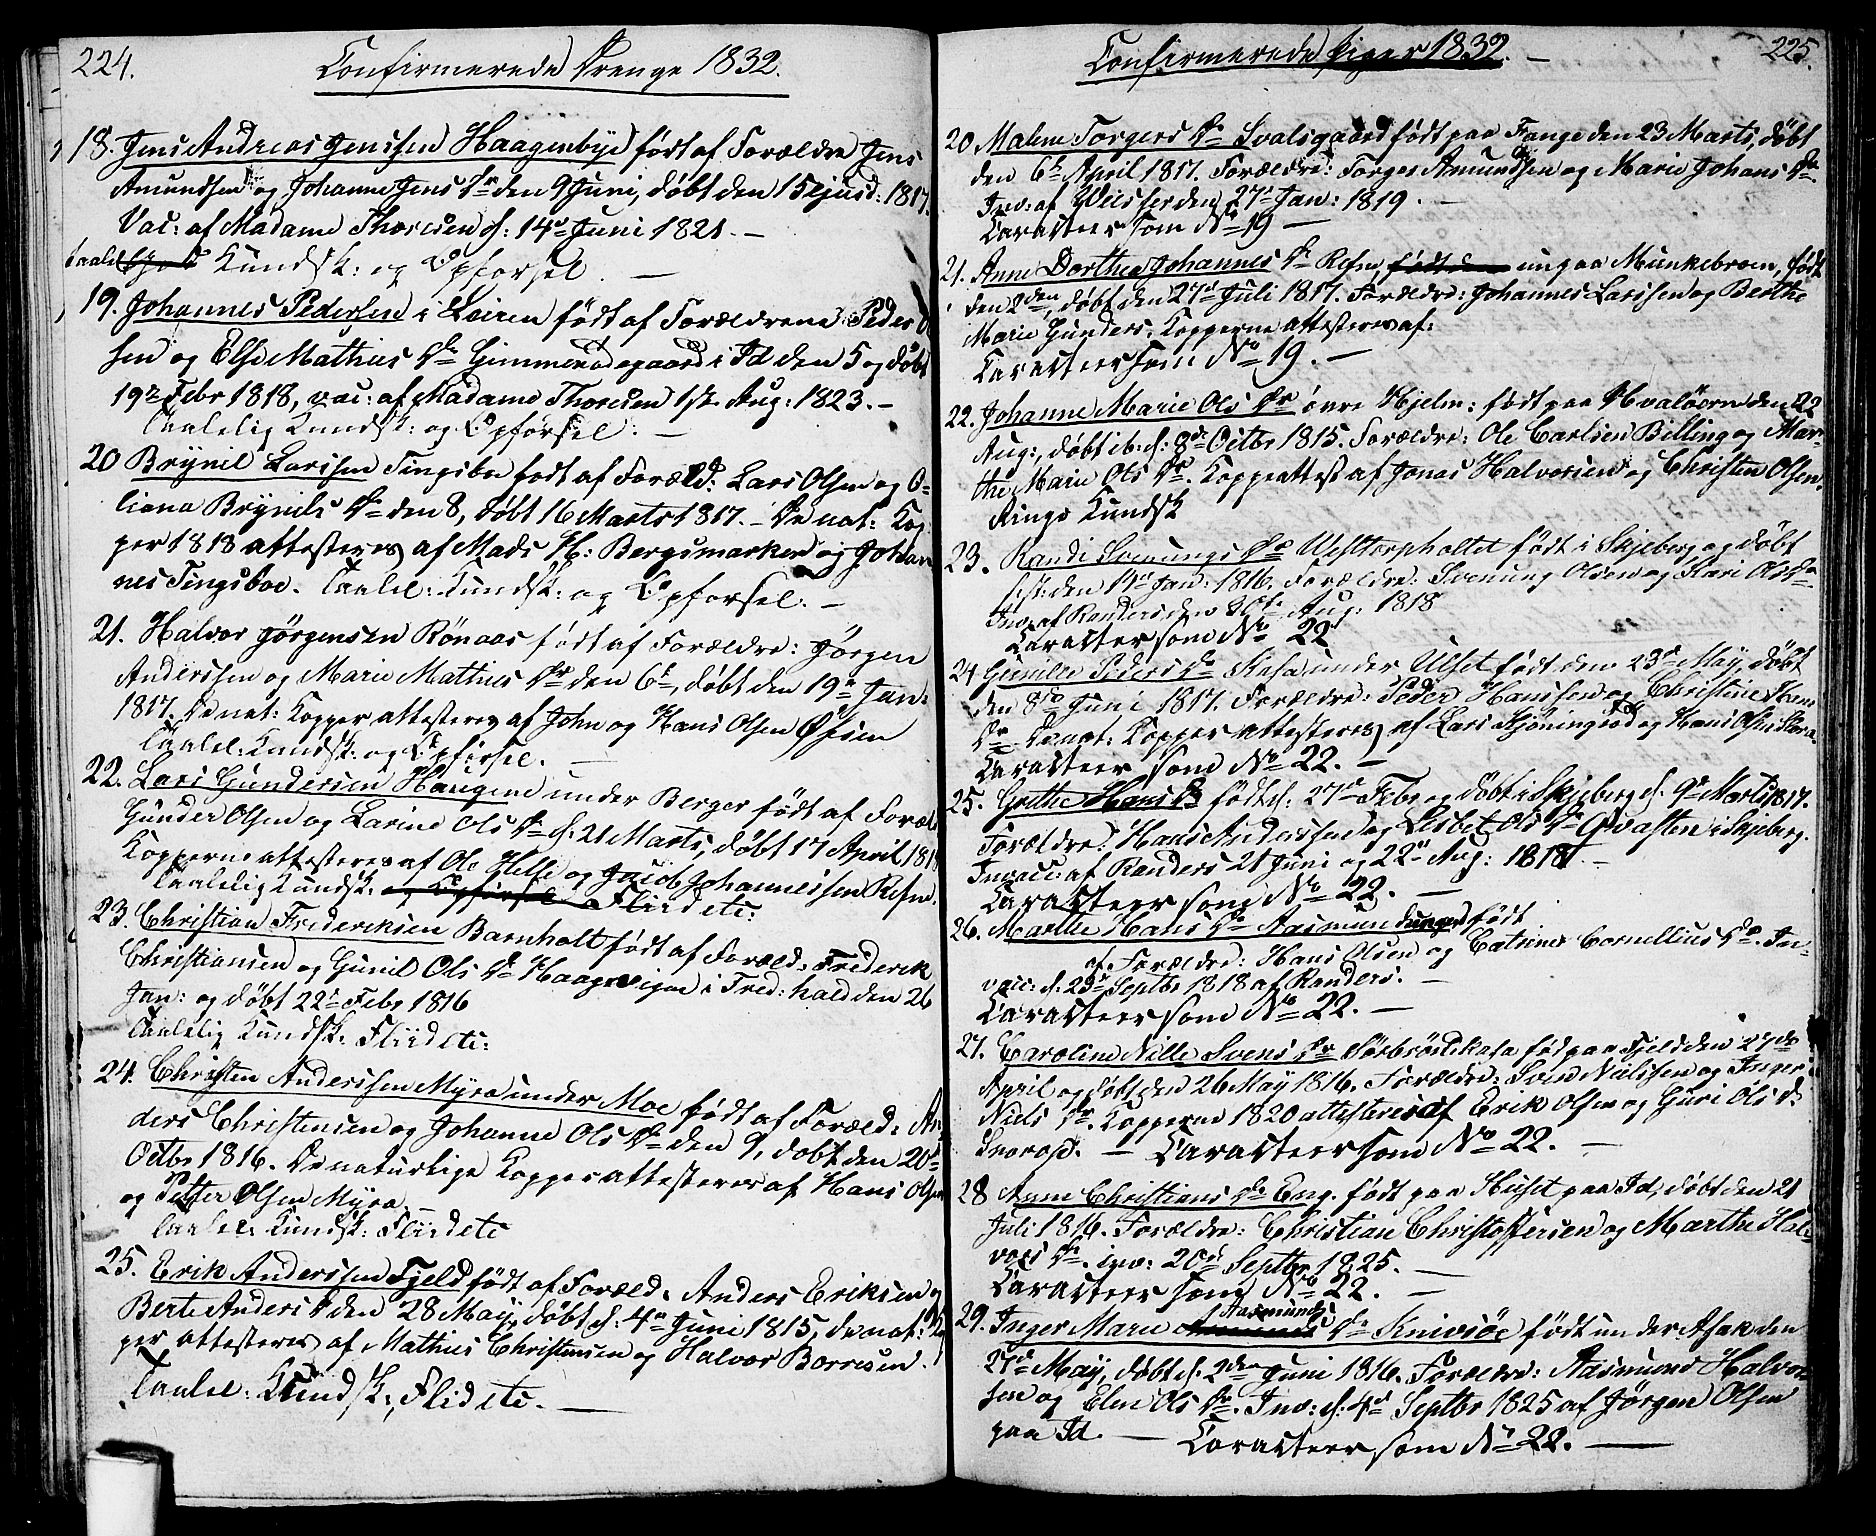 224.
Confirmerede Drenge 1832.
18. Jens Andreas Jenssen Haagenbye født af Forældre Jens
Amundsen og Johanne Jens Dr den 9 Juni, døbt den 15 ejusd: 1817.
Vac: af Madame Thoresen d: 14de Juni 1821. —
taalel Kundsk: og Opførsel —
19. Johannes Pedersen i Leiren født af Forældrene Peder
sen og Else Mathias Dr Gimmerødegaard i Id den 5 og døbt
19de Febr 1818, vac: af Madame Thoresen 1ste Aug: 1823. —
Taalelig Kundsk: og Opførsel. —
20 Brynil Larssen Tingsboe født af Foræld: Lars Olsen og O-
liana Brynils Dr den 8, døbt 16 Marts 1817. — De nat: Kop
per 1818 attesteres af Mads H: Bergsmarken og Johan
nes Tingsboe. Taalel: Kundsk: og Opførsel. —
21. Halvor Jörgensen Rönaas født af Forældre: Jörgen
Anderssen og Marie Mathias Dr den 6te, døbt den 19de Jan:
1817. De nat: Kopper attesteres af John og Hans Olsen
Taalel: Kundsk: og Opførsel. —
22. Lars Gundersen Haugen under Berger født af Foræld
Gunder Olsen og Larine Ols Dr d: 21 Marts, døbt 17 April 181
Kopperne attesteres af Ole Helle og Jacob Johannessen Refne.
Taalelig Kundsk: og Opførsel Fliid etc:
23. Christian Frederiksen Barnholt født af Foræld: Frederik
Christiansen og Gunil Ols Dr Haagensveien i Fred:hald den 26
Jan: og døbt 22de Febr 1816
Taalelig Kundsk: Fliid etc:
24. Christen Anderssen Myra under Moe født af Foræld: An
ders Christensen og Johanne Ols Dr den 9, døbt den 20de
Octbr 1816. De naturlige Kopper attesteres af Hans Olsen
og Petter Olsen Myra
Taalel: Kundsk: Fliid etc
25. Erik Anderssen Fjeld født af Foræld: Anders Eriksen og
Berte Anders D den 28 May, døbt d: 4de Juni 1815, de nat: Kop
per attesteres af Mathias Christensen og Halvor Borresen
Taalel: Kundsk: Flid etc. —
Confirmerede Piger 1832. —
225.
20 Malene Torgers Dr Svalsgaard født paa Tange den 23 Marts, døbt
den 6te April 1817. Forældre: Torger Amundsen og Marie Johans Dr
Inv: af den 27de Jan: 1819. —
Caracteer som No 19 —
21. Anne Dorthea Johannes Dr Refne, født den ung paa Munkebroen, født
den 2den, døbt den 27de Juli 1817. Forældre: Johannes Larssen og Berthe
Marie Gunders. Kopperne attesteres af:
Caracteer som No 19. —
22. Johanne Marie Ols Dr övre Hjelm: født paa Hvalöerne den 22
Aug:, døbt ib: d: 8de Octbr 1815. Forældre: Ole Carlsen Billing og Mar
the Marie Ols Dr. Koppeattest af Jonas Halvorsen og Christen Olsen.
Ringe Kundsk
23. Randi Svenungs Dr Westtorpholtet født i Skjeberg og døbt
s: st: den 14de Jan: 1816. Forældre: Svenung Olsen og Kari Ols Dr
Inv. af Randers den 30te Aug: 1818
Caracteer som No 22
24 Gunille Peders Dr Refsa under Ulset født den 23de May, døbt
den 8de Juni 1817. Forældre: Peder Hanssen og Christine Hans
Dr De nat: Kopper attesteres af Lars Hjöningsöd og Hans Olsen
Caracteer som No 22. —
25. Grethe Hans D født d: 27de Febr og døbt i Skjeberg d: 9de Marts 1817.
Forældre: Hans Anderssen og Lisbet Ols Dr Qvasten i Skjeberg.
Invacc: af Randers 21 Juni og 22de Aug: 1818. —
Caracteer som No 22. —
26. Marthe Hans Dr Aasmundunge født
af Forældre: Hans Olsen og Catrine Cornellius Dr. In-
vacc: d: 23de Septbr 1818 af Randers. —
Caracteer som No 22. —
27. Caroline Nille Svens Dr Sörbröd Kasa fød paa Fjeld den 27de
April og døbt den 26 May 1816. Forældre: Sven Nielsen og Inger
Niels Dr. Kopperne 1820 attesteres af Erik Olsen og Guri Ols D.
— Caracteer som No 22. —
28 Anne Christians Dr Eng. født paa Huset paa Id, døbt den 21
Juli 1816. Forældre: Christian Christoffersen og Marthe Hal-
vors Dr. inv: 20de Septbr 1825. —
Caracteer som No 22. —
29. Inger Marie Aasmunds Dr Knivsöe født under Asak den
27de May, døbt d: 2den Juni 1816. Forældre: Aasmund Halvor
sen og Elen Ols Dr. Inv: d: 4de Septbr 1825 af Jörgen Olsen
paa Id. — Caracteer som No 22. —